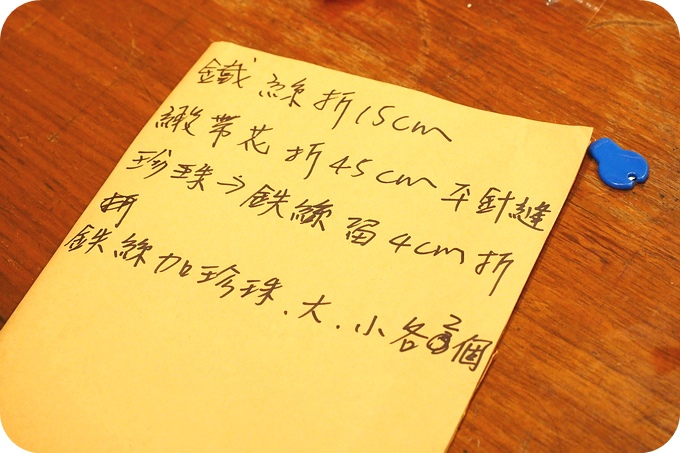 鐵絲折15cm
緞帶花折45cm平針縫
珍珠→鉄絲留4cm折
折
鉄絲加珍珠.大.小各2個